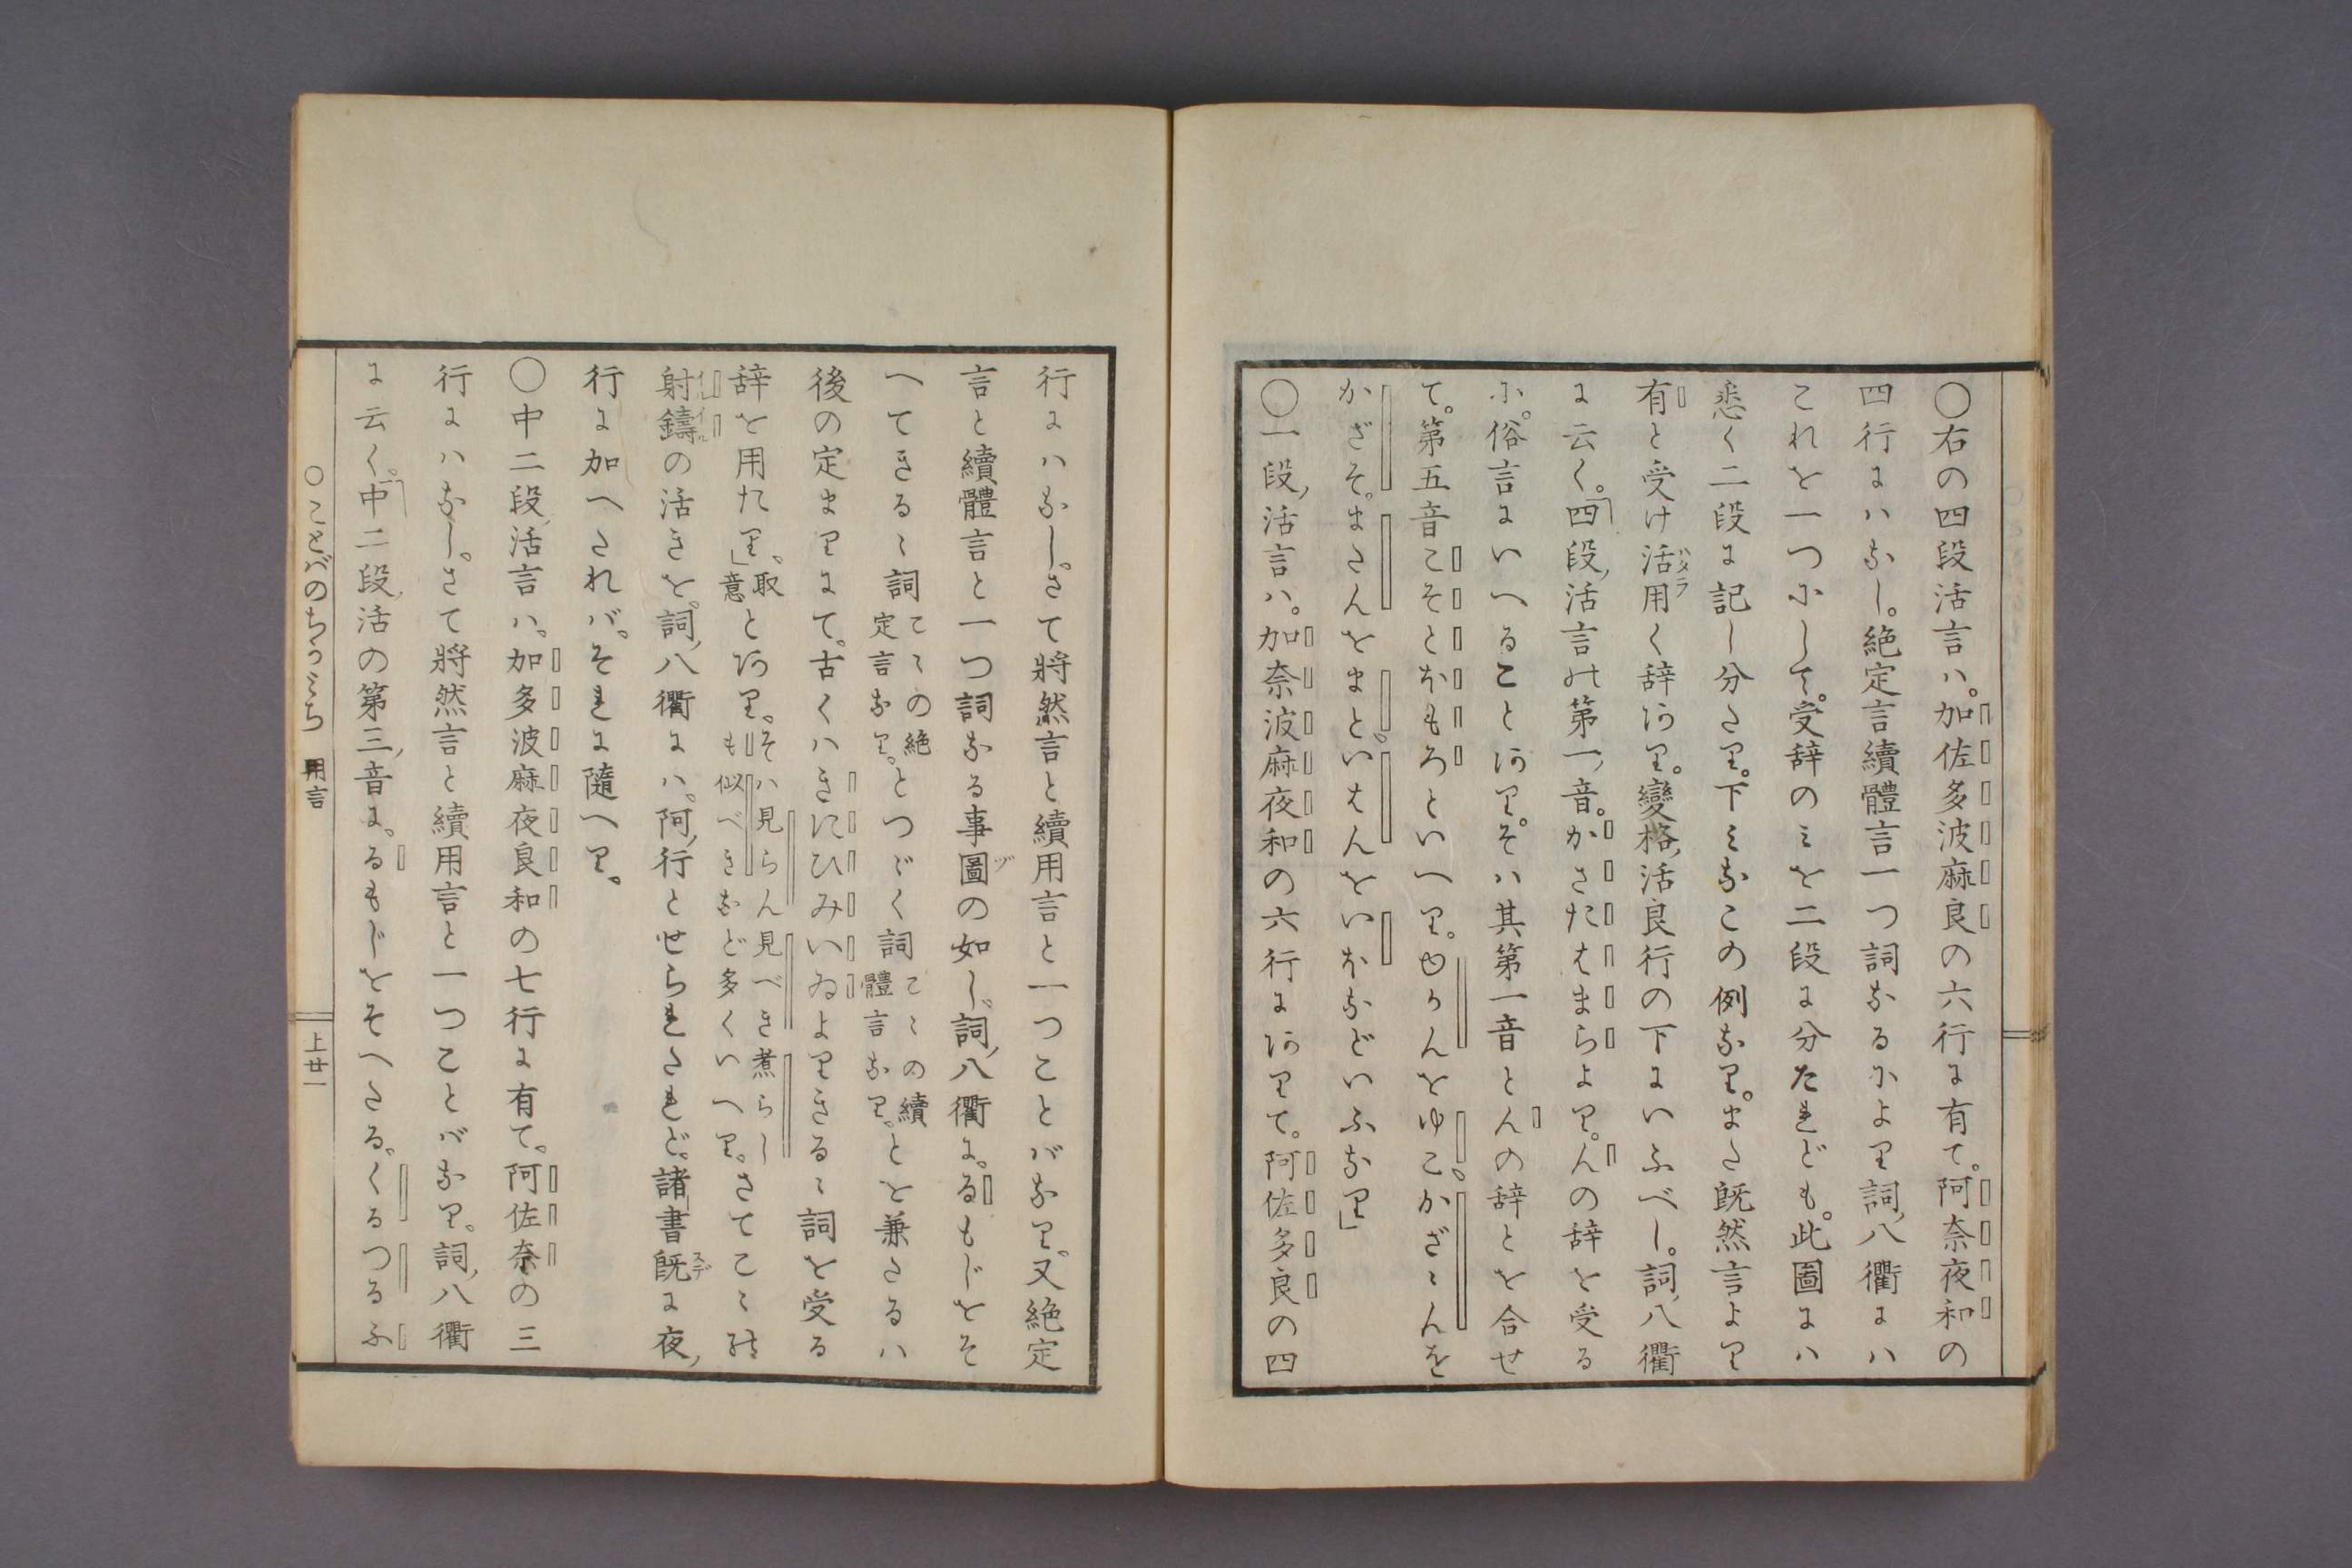 〇右の四段活言ハ。加佐多波麻良の六行に有て。阿奈夜和の
四行にハなし。絶定言續體言一つ詞なるによりて詞八衢にハ
これを一つにして。受辞のミを二段に分たれども。此圖にハ
悉く二段に記し分たり。下ミなこの例なり。また既然言より
有と受け活用く辞あり。變格活良行の下にいふべし。詞八衢
に云く。「四段活言の第一音。かさたはまらより。んの辞を受る
に。俗言にいへることあり。そハ其第一音とんの辞とを合せ
て。第五音こそとほもろといへり。ゆかんをゆこ。かざゝんを
かざそ。またんをまと。いはんをいほなどいふなり」
〇一段活言ハ。加奈波麻夜和の六行にありて。阿佐多良の四
行にハなし。さて將然言と續用言と一つことバなり。又絶定
言と續體言と一つ詞なる事圖の如し。詞八衢に。るもじをそ
へてきるゝ詞こゝの絶定言なり。とつゞく詞こゝの續體言なり。とを兼たるハ
後の定まりにて。古くハきにひみいゐよりきるゝ詞を受る
辞を用たり。」取意とあり。そハ見らん見べき煮らしも似べきなど多くいへり。さてこゝの
射鑄の活きを。詞八衢にハ。阿行とせられたれど。諸書既に夜
行に加へたれバ。それに隨へり。
〇中二段活言ハ。加多波麻夜良和の七行に有て。阿佐奈の三
行にハなし。さて將然言と續用言と一つことバなり。詞八衢
に云く。「中二段活の第三音に。るもじをそへたる。くるつるふ
〇ことバのちかミち 用言 上廿一